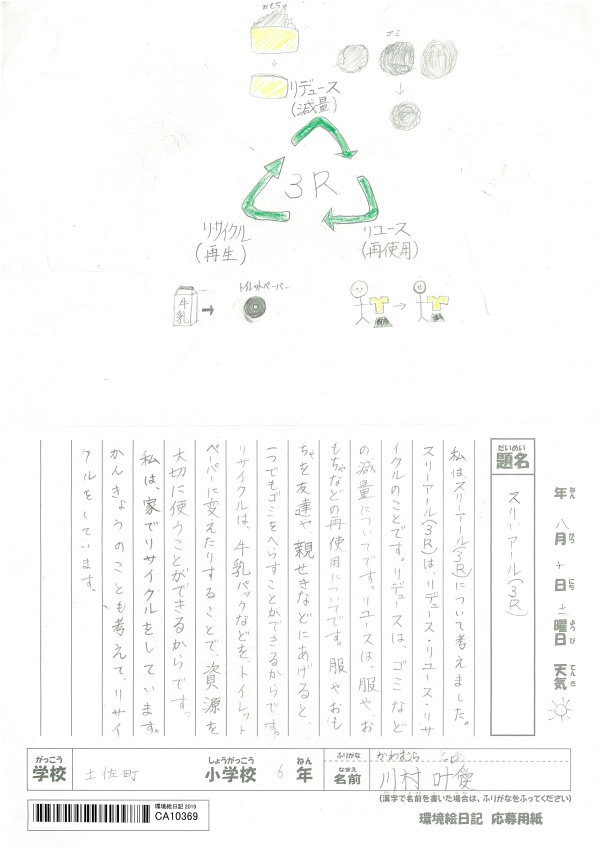 おもちゃ
ゴミ
リデュース
(減量)
3R
リサイクル
(再生)
リユース
(再使用)
牛乳
トイレットペーパー
年 八月 十日 土曜日 天気
ねん がつ にち ようび てんき
だいめい
題名
スリーアール(3R)
私は、スリーアール(3R)について考えました。
スリーアール(3R)は、リデュース・リユース・リサ
イクルのことです。リデュースは、ゴミなど
の減量についてです。リユースは、服やお
もちゃなどの再使用についてです。服やおも
ちゃを友達や親せきなどにあげると、
一つでもゴミをへらすことができるからです。
リサイクルは、牛乳パックなどを、トイレット
ペーパーに変えたりすることで、資源を
大切に使うことができるからです。
私は、家でリサイクルをしています。
かんきょうのことも考えて、リサイ
クルをしています。
がっこう
学校
土佐町
しょうがっこう ねん
小学校 6年
ふりがな
かわむら
なまえ
名前
川村 叶愛
(漢字で名前を書いた場合は、ふりがなをふってください)
環境絵日記2019
CA10369
環境絵日記 応募用紙